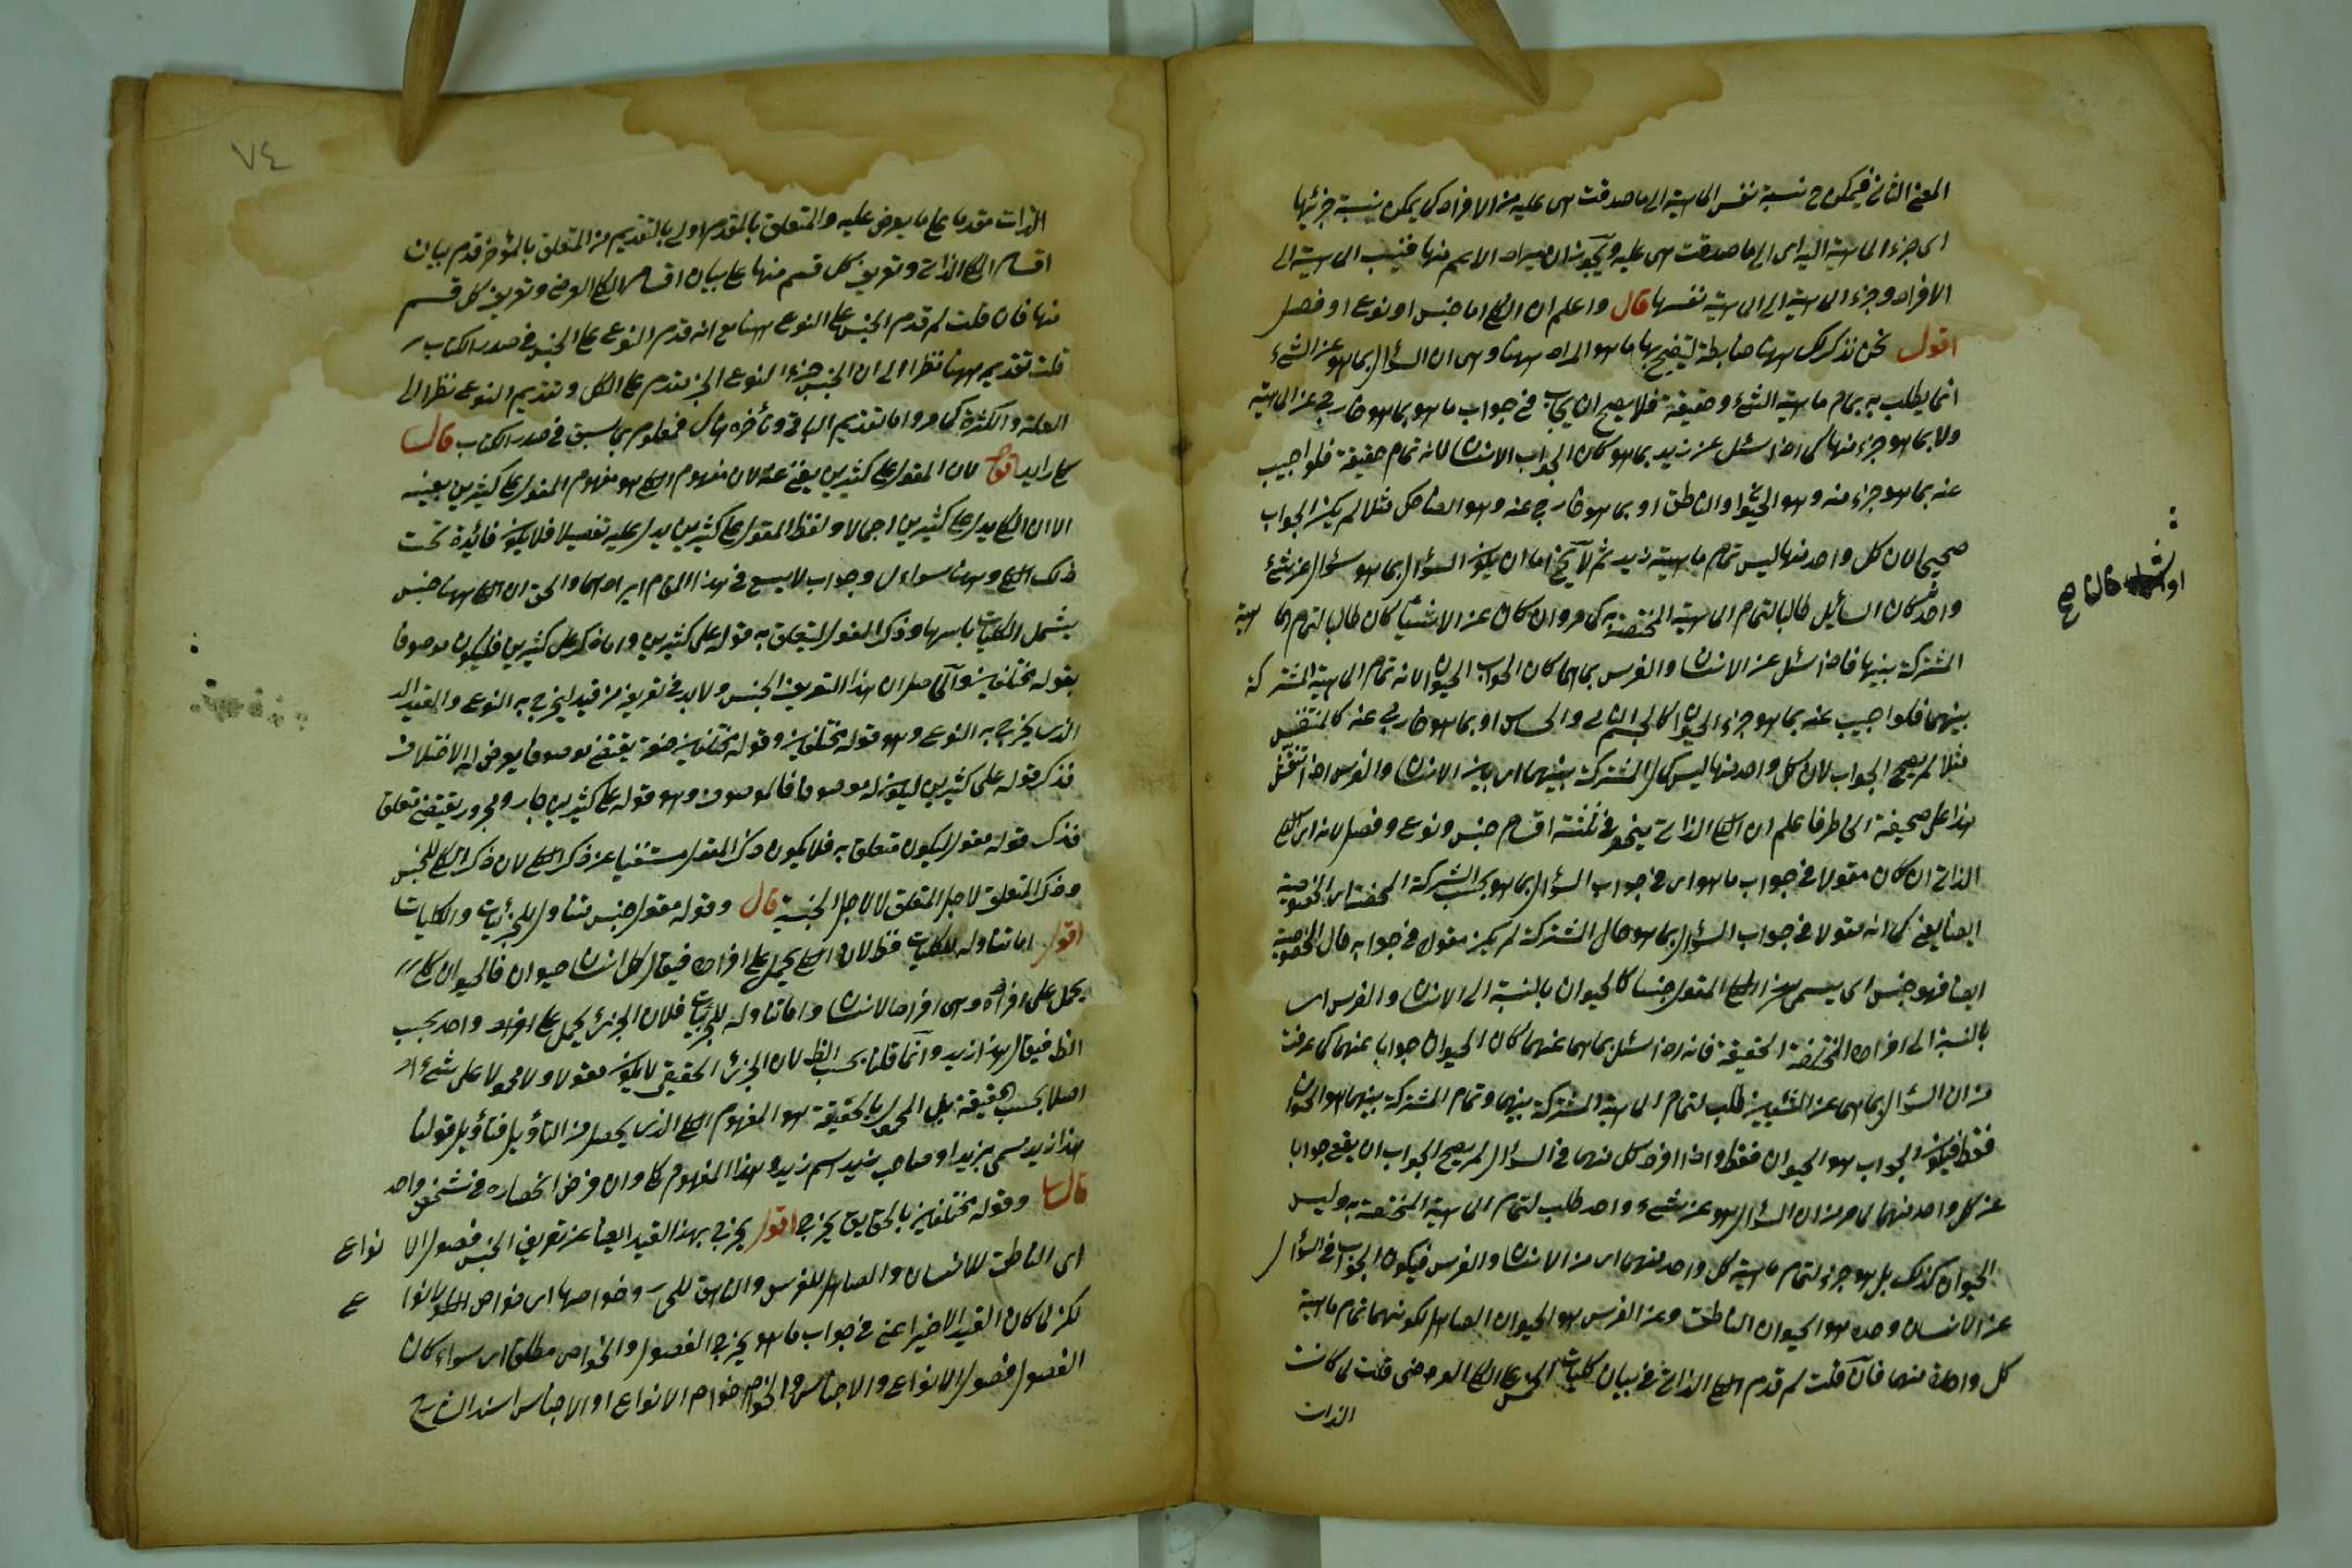 المعنى الثاني فيمكن ح نسبة نفس الماهية الى ما صدقت هى عليه من الافراد كما يمكن نسبة جزئها
اى جزء الماهية اليه اى الى ما صدقت هى عليه ويجوز ان يراد الاسم منها فنسب الماهية الى
الافراد وجزء الماهية الى الماهية نفسها قال واعلم ان الكلى اما جنس او نوع او فصل
اقول نحن نذكر لك ههنا ضابطة ليتضح بها ما هو المراد ههنا وهى ان السؤال بما هو عن الشئ
انما يطلب به تمام ماهية الشئ وحقيقة فلا يصح ان يجاب فى جواب ما هو بما هو خارج عن الماهية
ولا بما هو جزء منها كما اذا سئل عن زيد بما هو كان الجواب الانسان لانه تمام حقيقة فلو اجيب
عنه بما هو جزء منه وهو الحيوان او الناطق او بما هو خارج عنه وهو الضاحك مثلا لم يكن الجواب
صحيحا لان كل واحد منها ليس تمام ماهية زيد ثم لا يخ اما ان يكون السؤال بما هو سؤال عن شئ
واحد كان السائل طالبا لتمام الماهية المختصة به كما مر وان كان عن الاشياء كان طالبا لتمام الما هية
المشتركة بينها فاذا سئل عن الانسان والفرس بما هما كان الجواب الحيوان لانه تمام الماهية المشتركة
بينهما فلو اجيب عنه بما هو جزء الحيوان كالجسم النامى والحساس او بما هو خارج عنه كالمتنفس
مثلا لم يصح الجواب لان كل واحد منها ليس كمال المشتركة بينهما اى بين الانسان والفرس اذا انتقش
هذا على صحيفة الخاطر فاعلم ان الكلى الذاتى ينحصر فى ثلثة اقسام جنس ونوع وفصل لانه اى الكلى
الذاتى ان كان مقولا فى جواب ما هو اى فى جواب السؤال بما هو بحسب الشركة المحضة اى الخصوصية
ايضا يعنى كما انه مقولا فى جواب السؤال بما هو حال الشركة لم يكن مقولا فى جوابه حال الخصوصية
ايضا فهو جنس اى يسمى هذا الكلى المقول جنسا كالحيوان بالنسبة الى الانسان والفرس اى
بالنسبة الى افراده المختلفة الحقيقة فانه اذا سئل بما هما عنهما كان الحيوان جوابا عنهما كما عرفت
من ان السؤال بما هما عن الشيئين طلب لتمام الماهية المشتركة بينهما وتمام المشتركة بينهما هو الحيوان
فقط فيكون الجواب هو الحيوان فقط واذا افرد كل منهما فى السؤال لم يصح الجواب ان يقع جوابا
عن كل واحد منهما لما مر من ان السؤال بما هو عن شئ واحد طلب لتمام الماهية المختصة به وليس
الحيوان كذلك بل هو جزء لتمام ماهية كل واحد منهما اى من الانسان والفرس فيكون الجواب فى السؤال
عن الانسان وحده هو الحيوان الناطق وعن الفرس هو الحيوان الصاهل لكونهما تمام ماهية
كل واحد منهما فان قلت لم قدم الكلى الذاتى فى بيان كليات الخمس على الكلى العرضى قلت لما كانت
الذات
٧٤
الذات مقدما على ما يعرض عليه والمتعلق بالمقدم اولى بالتقديم من المتعلق بالمؤخر قدم بيان
اقسام الكلى الذاتى وتعريف كل قسم منها على بيان اقسام الكلى العرضى وتعريف كل قسم
منها فان قلت لم قدم الجنس على النوع ههنا مع انه قدم النوع على الجنس فى صدر الكتاب
قلت تقديم ههنا نظرا الى ان الجنس جزء النوع والجزء تقدم على الكل وتقديم النوع نظرا الى
العلة والكثرة كما مر واما تقديم الباقى وتأخره هناك فمعلوم بما سبق فى صدر الكتاب قال
كلى زايد اقول لان المقول على كثيرين يغنى عنه لان مفهوم الكلى هو مفهوم المقول على كثيرين بعينه
الا ان الكلى يدل على كثيرين اجمالا ولفظ المقول على كثيرين يدل عليه تفصيلا فلا يكون فائدة تحت
ذلك الكلى وههنا سؤال وجواب لا يسع فى هذا المقام ايرادهما والحق ان الكلى ههنا جنس
يشمل الكليات باسرها وذكر المقول ليتعلق به قوله على كثيرين واما ذكر على كثيرين فليكون موصوفا
بقوله مختلفين والحاصل ان هذا التعريف للجنس ولا بد فى تعريفه من قيد ليخرج به النوع والقيد
الذى يخرج به النوع وهو قوله مختلفين وقوله مختلفين صفة يقتضى موصوفا يعرض له الاختلاف
فذكر قوله على كثيرين ليكون له موصوفا فالموصوف وهو قوله على كثيرين جار ومجرور يقتضى متعلق
فذكر قوله مقول ليكون متعلق به فلا يكون ذكر المقول مستغنيا عن ذكر الكلى لان ذكر الكلى للجنس
وذكر المتعلق لاجل المتعلق لا لاجل الجنسية قال وقوله مقول جنس متناول للجزئيات والكليات
اقول اما تناوله للكليات فظ لان الكلى يحمل على افراده فيقال كل انسان حيوان فالحيوان كلى
يحمل على افراده وهى افراد الانسان واما تناوله للجزئيات فلان الجزئى يحمل على افراد واحد بحسب
الظ فيقال هذا زيد وانما قلنا بحسب الظ لان الجزئ الحقيقى لا يكون مقولا ولا محمولا على شئ
اصلا بحسب الحقيقة بل المحمول بالحقيقة هو المفهوم الكلى الذى يحصل من التأويل فتأويل قولنا
هذا زيد مسمى بزيد او صاحب زيد اسم زيد وهذا المفهوم كلى وان فرض انحصاره فى شخص واحد
قال وقوله مختلفين بالحقايق يخرج اقول يخرج بهذا القيد ايضا عن تعريف الجنس فصول الا نواع
اى الناطق للانسان والصاهل للفرس والناهق للحمار وخواصها اى خواص الانوا ع
لكن لما كان القيد الاخير اعنى فى جواب ما هو يخرج الفصول والخواص مطلقا اى سواء كان
الفصول فصول الانواع والاجناس والخواص خواص الانواع او الاجناس اسند الشارح